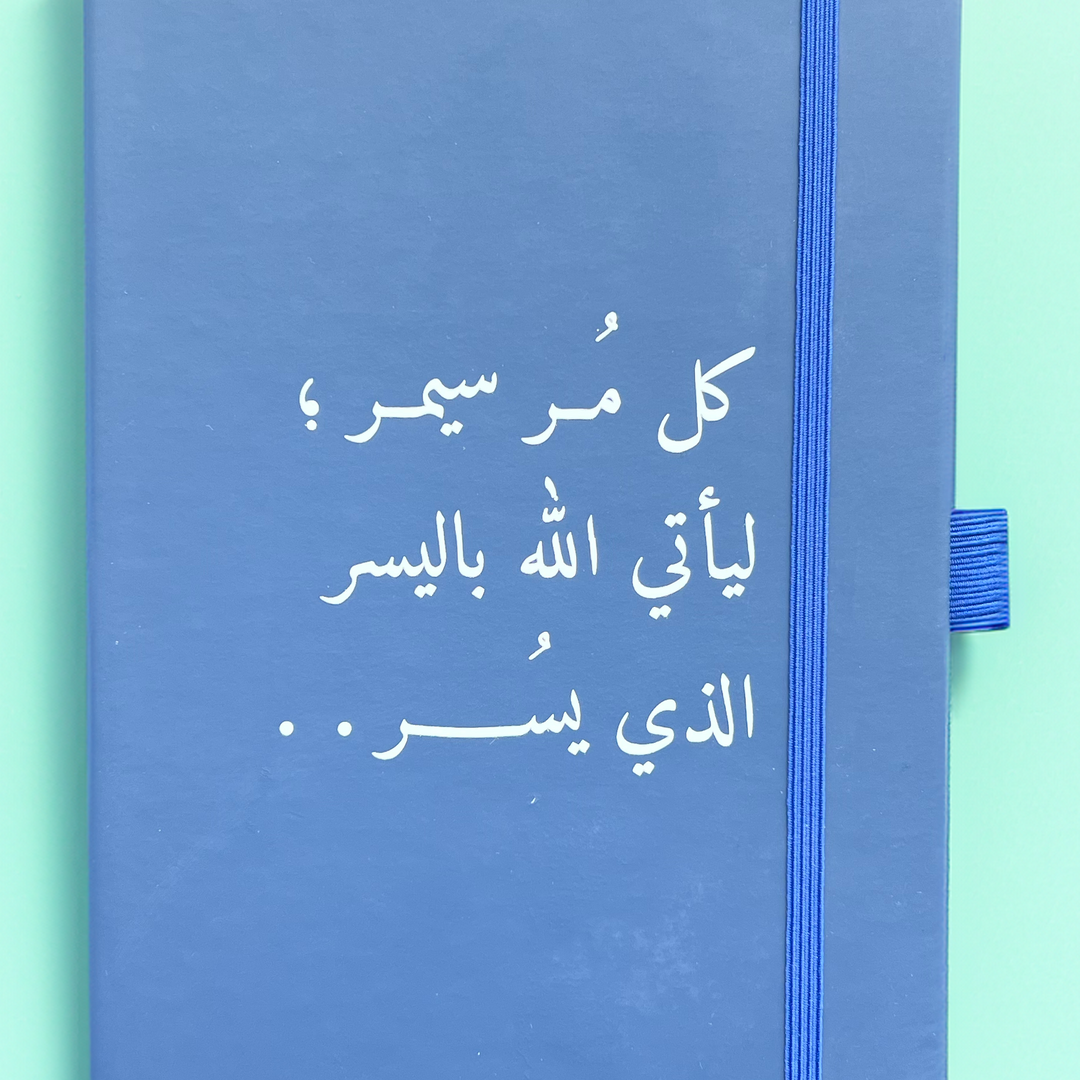 كل مُر سيمر ؛
ليأتي الله باليسر
الذي يسُر . .